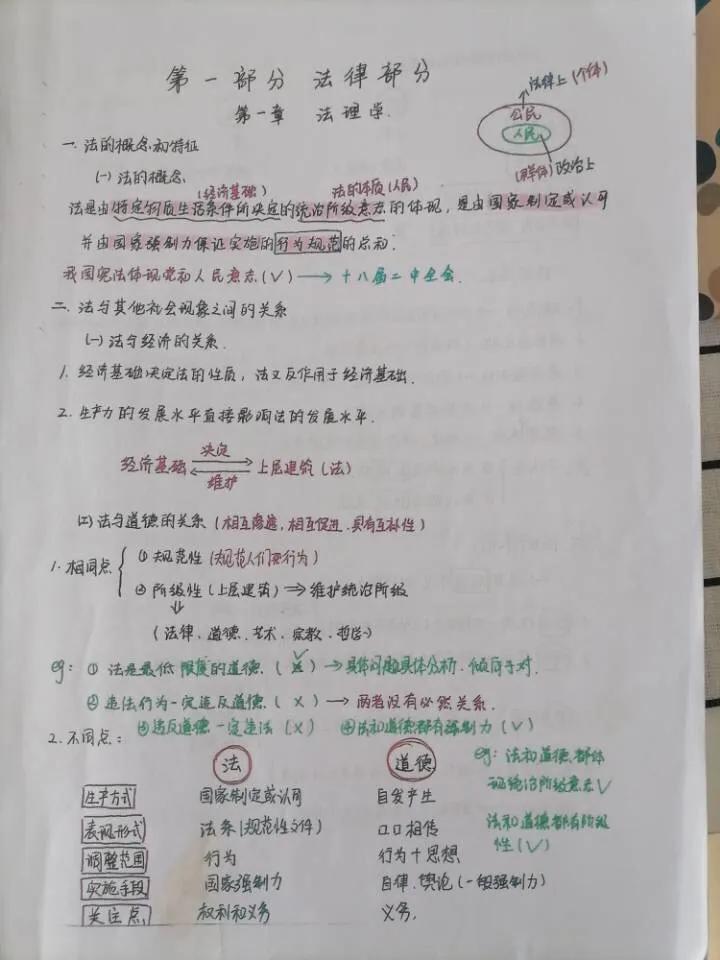 第一部分 法律部分
第一章 法理学.
法律上(个体)
公民
人民
(群体)政治上
一.法的概念和特征
(一)法的概念.
(经济基础) 法的本质(人民)
法是由特定物质生活条件所决定的统治阶级意志的体现,是由国家制定或认可
并由国家强制力保证实施的行为规范的总和.
我国宪法体现党和人民意志(√)→十八届二中全会.
二.法与其他社会现象之间的关系
(一)法与经济的关系.
1.经济基础决定法的性质,法又反作用于经济基础.
2.生产力的发展水平直接影响法的发展水平.
决定
经济基础 上层建筑(法)
维护
(二)法与道德的关系(相互渗透,相互促进.具有互补性)
1.相同点
①规范性(规范人们的行为)
②阶级性(上层建筑)⇒维护统治阶级
(法律、道德、艺术、宗教、哲学)
eg:①法是最低限度的道德.(√)→具体问题具体分析.倾向于对.
②违法行为一定违反道德.(×)→两者没有必然关系.
③违反道德一定违法(×) ④法和道德都有强制力(√)
2.不同点:
法 道德
eg:法和道德都体
现统治阶级意志√
法和道德都有阶级
性(√)
生产方式 国家制定或认可 自发产生
表现形式 法条(规范性文件) 口口相传
调整范围 行为 行为+思想
实施手段 国家强制力 自律.舆论(一般强制力)
关注点 权利和义务 义务.